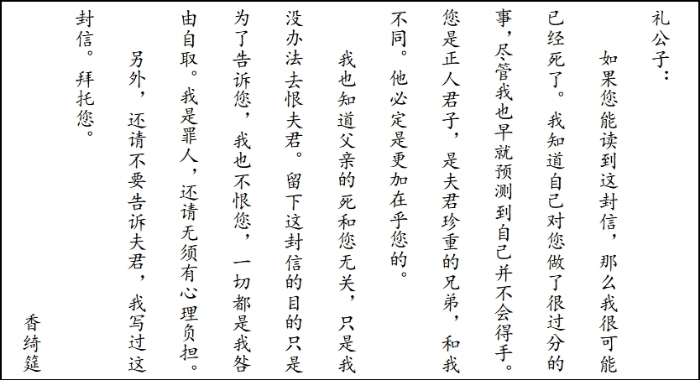 礼公子：
如果您能读到这封信，那么我很可能
已经死了。我知道自己对您做了很过分的
事，尽管我也早就预测到自己并不会得手。
您是正人君子，是夫君珍重的兄弟，和我
不同。他必定是更加在乎您的。
我也知道父亲的死和您无关，只是我
没办法去恨夫君。留下这封信的目的只是
为了告诉您，我也不恨您，一切都是我咎
由自取。我是罪人，还请无须有心理负担。
另外，还请不要告诉夫君，我写过这
封信。拜托您。
香绮筵